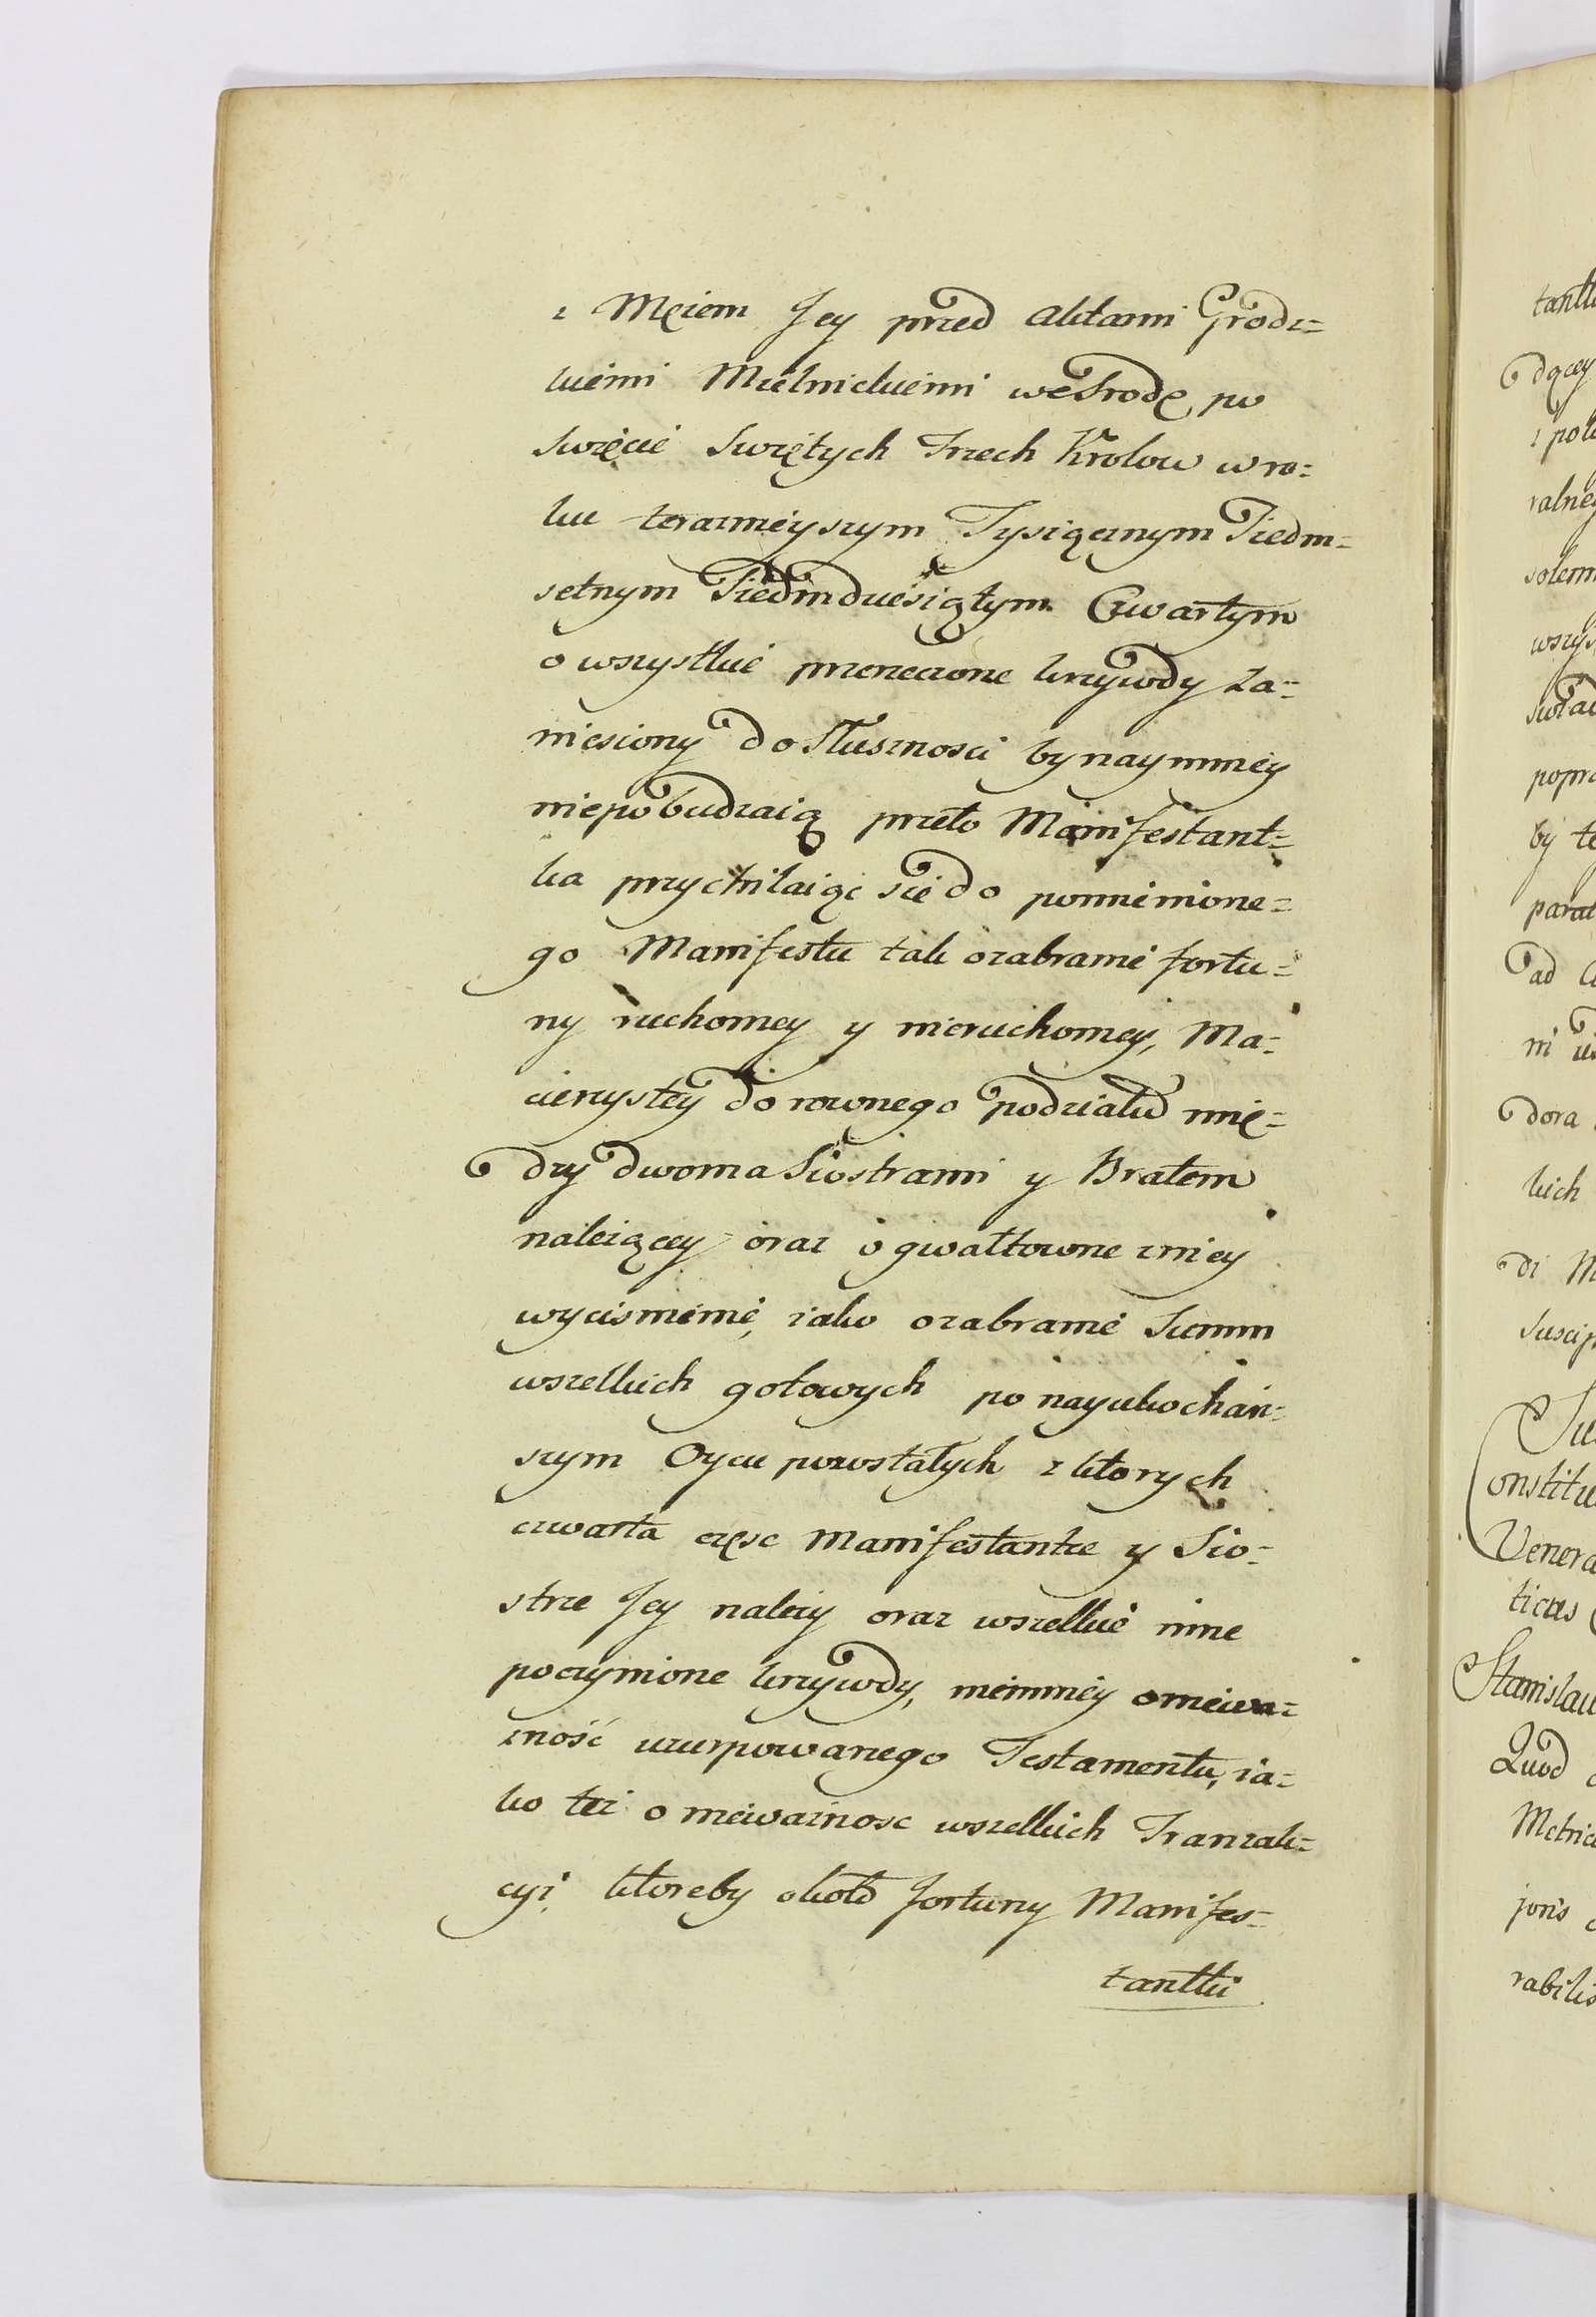 z Mężem Jey przed Aktami Grodz=
kiemi Mielnickiemi weSrodę po
Swięcie Swiętych Trzech Krolow w ro=
ku teraznieyszym Tysiącznym Siedm=
setnym Siedmdziesiątym Czwartym
o wszystkie przerzeczone krzywdy za=
niesiony do Słusznosci bynaymniey
niepobudzaią przeto Manifestant=
ka przychilaiąc sie do pomienione=
go Manifestu tak ozabranie fortu=
ny ruchomey y nieruchomey, Ma=
cierzystey do rownego podziału mię=
dzy dwoma Siostrami y Bratem
należącey oraz o gwałtowne zniey
wycisnienie, iako ozabranie Summ
wszelkich gotowych po nayukochań=
szym Oycu pozostałych z ktorych
czwarta częsc Manifestantce y Sio=
strze Jey należy oraz wszelkie inne
poczynione krzywdy, niemniey oniewa=
żność uzurpowanego Testamentu, ia=
ko też o nieważnosc wszelkich Tranzak=
cyi, ktoreby około fortuny Manifes=
tantki
tantk
dącey
z pol
ralney
solem
wszys
Swiad
popra
by te
parat
ad
ni
dora
kich
di M
Suscip
onstitu
Venera
ticus
Stanislau
Quod
Metric
joris
rabilis